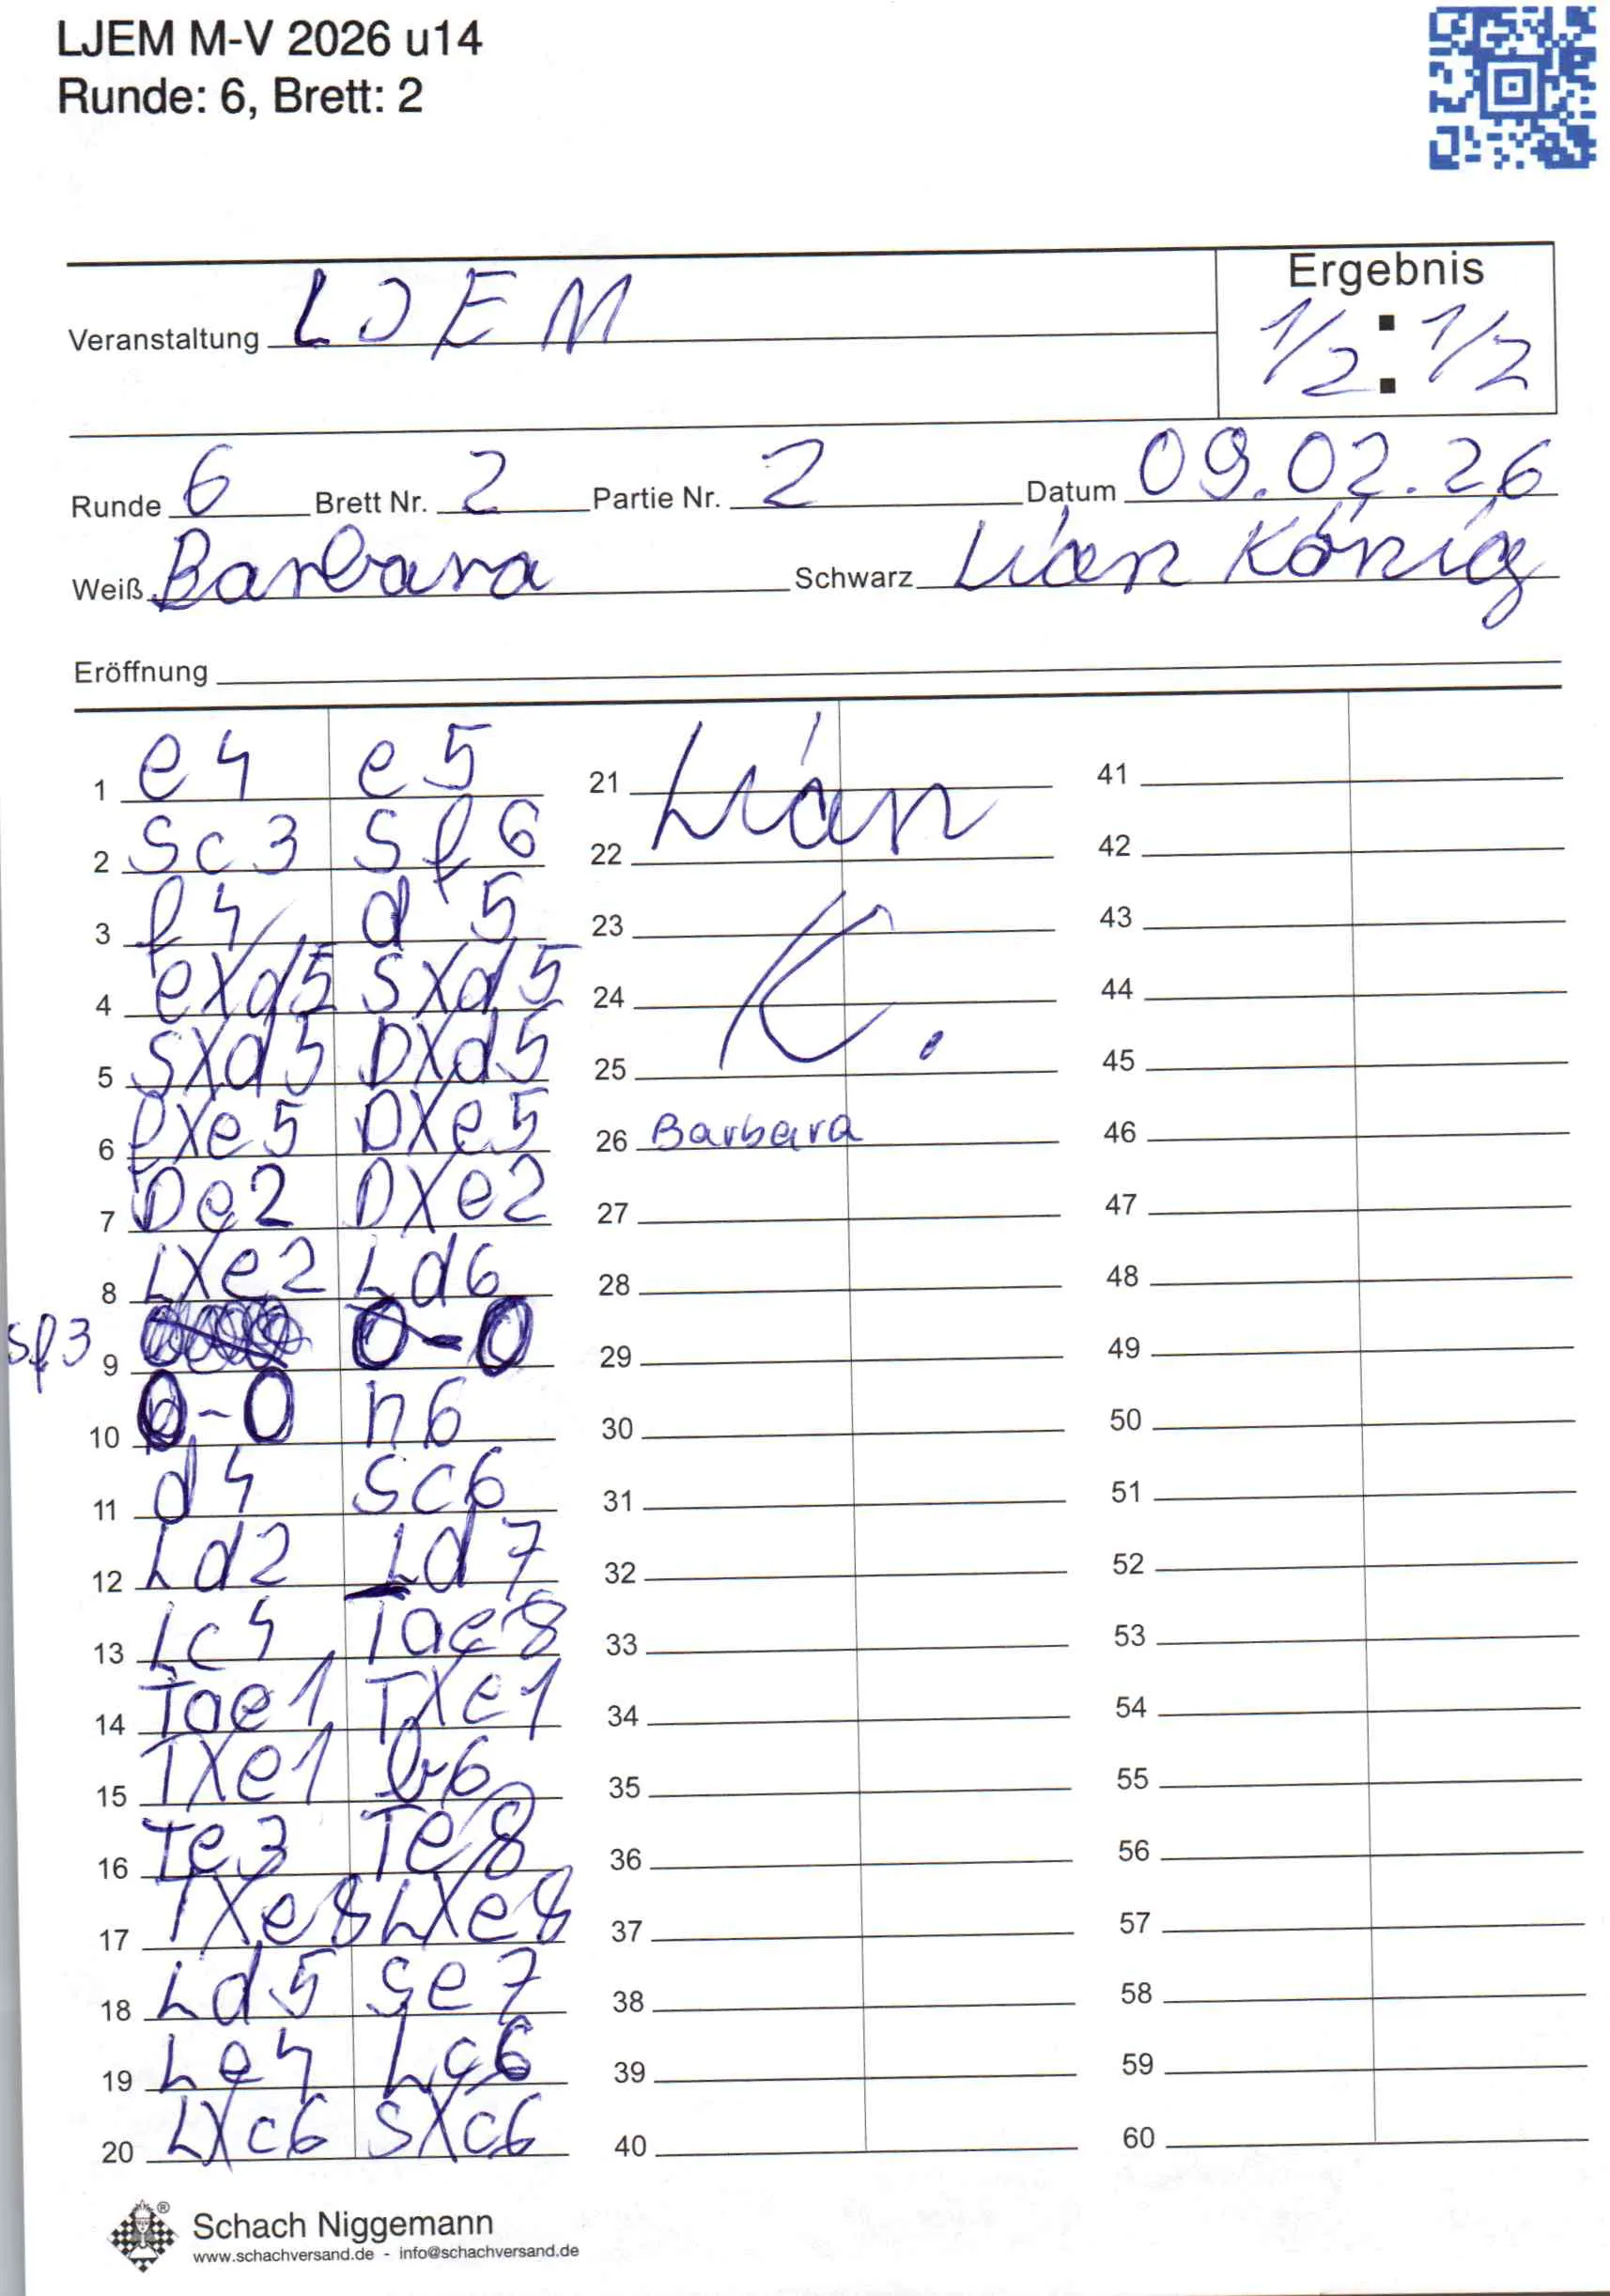 LJEM M-V 2026 u14
Runde: 6, Brett: 2
Ergebnis
Veranstaltung LJEM 1/2 : 1/2
Runde 6 Brett Nr. 2 Partie Nr. 2 Datum 09.02.26
Weiß Barbara Schwarz Lian König
Eröffnung
1 e4 e5
2 Sc3 Sf6
3 f4 d5
4 eXd5 SXd5
5 SXd5 DXd5
6 fXe5 DXe5
7 De2 DXe2
8 LXe2 Ld6
Sf3 9 0-0
10 0-0 h6
11 d4 Sc6
12 Ld2 Ld7
13 Lc4 Tae8
14 Tae1 TXe1
15 TXe1 b6
16 Te3 Te8
17 TXe8 LXe8
18 Ld5 Se7
19 Le4 Lc6
20 LXc6 SXc6
21 Lian
22
23
24 K.
25
26 Barbara
27
28
29
30
31
32
33
34
35
36
37
38
39
40
41
42
43
44
45
46
47
48
49
50
51
52
53
54
55
56
57
58
59
60
Schach Niggemann ®
www.schachversand.de - info@schachversand.de